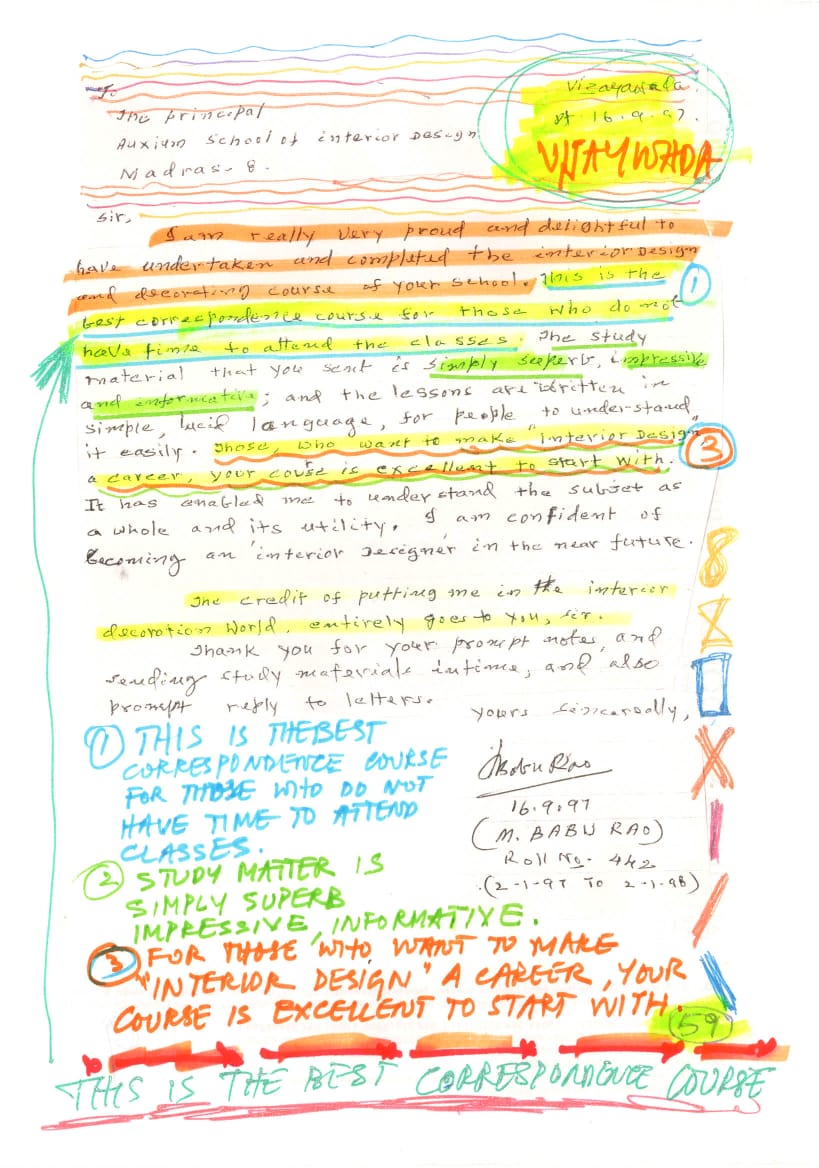 To
The principal
Auxium School of interior Design
Madras-8.
Vizayawada
dt. 16.9.97.
VIJAYWADA
Sir,
I am really very proud and delightful to
have undertaken and completed the interior Design
and decorating course of your school. This is the
best correspondence course for those who do not
have time to attend the classes. The study
material that you sent is simply superb, impressive
and informative; and the lessons are written in
simple, lucid language, for people to understand
it easily. Those, who want to make "interior Design"
a career, your course is excellent to start with.
It has enabled me to understand the subject as
a whole and its utility. I am confident of
becoming an interior Designer in the near future.
1
3
The credit of putting me in the interior
decoration world, entirely goes to you, sir.
Thank you for your prompt notes, and
sending study materials intime, and also
prompt reply to letters.
yours sincereally,
BabuRao
16.9.97
(M. BABU RAO)
Roll No. 442
(2-1-97 To 2-1-98)
1 THIS IS THE BEST
CORRESPONDENCE COURSE
FOR THOSE WHO DO NOT
HAVE TIME TO ATTEND
CLASSES.
2 STUDY MATTER IS
SIMPLY SUPERB
IMPRESSIVE, INFORMATIVE.
3 FOR THOSE WHO WANT TO MAKE
"INTERIOR DESIGN" A CAREER, YOUR
COURSE IS EXCELLENT TO START WITH.
59
THIS IS THE BEST CORRESPONDENCE COURSE